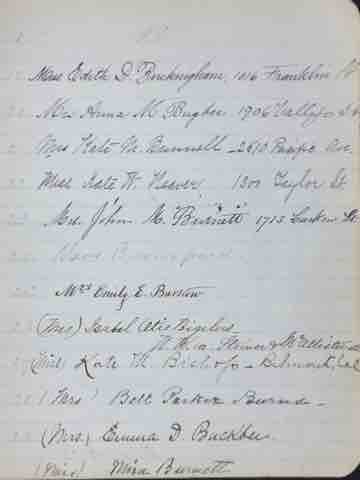 Miss Edith D. Buckingham, 1016 Franklin St
Mrs Anna M. Bugbee 1906 Vallejo St
Mrs Kate M. Bunnell - 2610 Pacific Ave.
Miss Kate W. Beaver, 1300 Taylor St
Mrs. John M. Burnett 1713 Larkin St
Mrs Emily E. Barstow
(Mrs) Isabel Otis Bigelow
Steiner & McAllister
(Miss) Kate M. Bishop - Belmont, Cal
(Mrs) Bell Parker Burns -
(Mrs.) Emma D. Buckbee.
(Miss) Mira Burnett